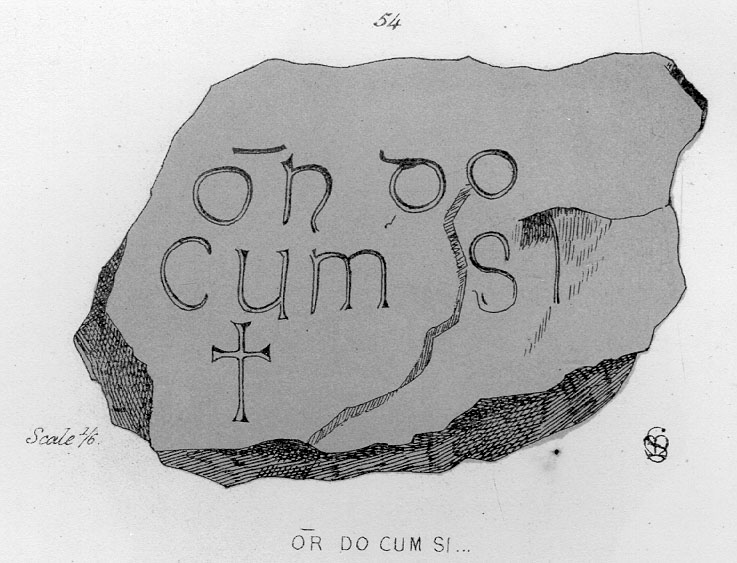 54
ōr do
cum si
Scale 1/6.
ŌR DO CUM SI...